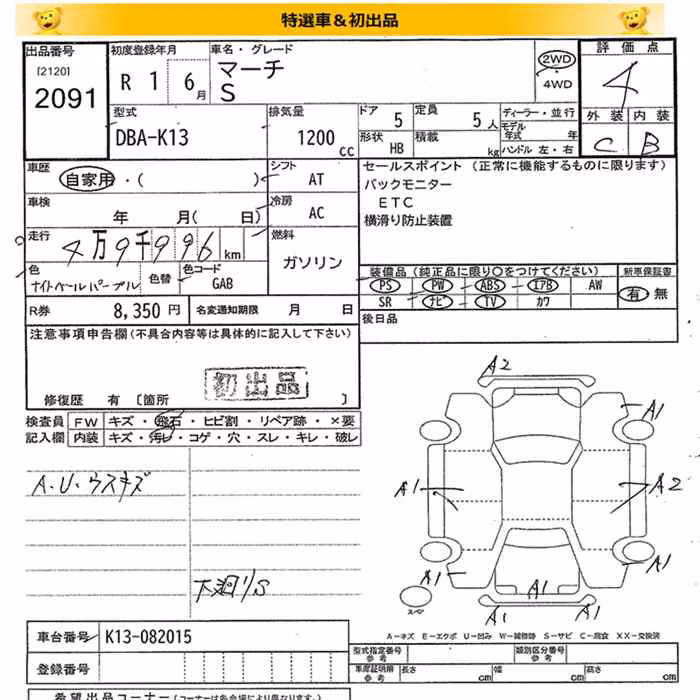 特選車&初出品
出品番号
[2120]
2091
初度登録年月
R 1 6月
車名・グレード
マーチ
S
2WD
4WD
評価点
4
外装 内装
C B
型式
DBA-K13
排気量
1200 cc
ドア 5
定員 5人
形状 HB
積載 kg
ディーラー・並行
モデル年式 年
ハンドル 左・右
車歴
自家用・( )
シフト
AT
車検
年 月( 日)
冷房
AC
走行
4万9千996km
燃料
ガソリン
色
ナイトベールパープル
色替
色コード
GAB
R券 8,350円
名変通知期限 月 日
セールスポイント (正常に機能するものに限ります)
バックモニター
ETC
横滑り防止装置
装備品(純正品に限り〇をつけてください)
PS PW ABS エアB AW
SR ナビ TV カワ
新車保証書
有 無
後日品
注意事項申告欄(不具合内容等は具体的に記入して下さい)
初出品
修復歴 有 [箇所 ]
検査員記入欄
FW キズ・飛石・ヒビ割・リペア跡・×要
内装 キズ・汚レ・コゲ・穴・スレ・キレ・破レ
A.U.ウスキズ
下廻りS
A2
A1
A1
A2
A1
A1
A1
A1
A1
スペア
A-キズ E-エクボ U-凹み W-補修跡 S-サビ C-腐食 XX-交換済
車台番号 K13-082015
登録番号
型式指定番号 参考
類別区分番号 参考
車庫証明用 参考
長さ cm
幅 cm
高さ cm
希望出品コーナー